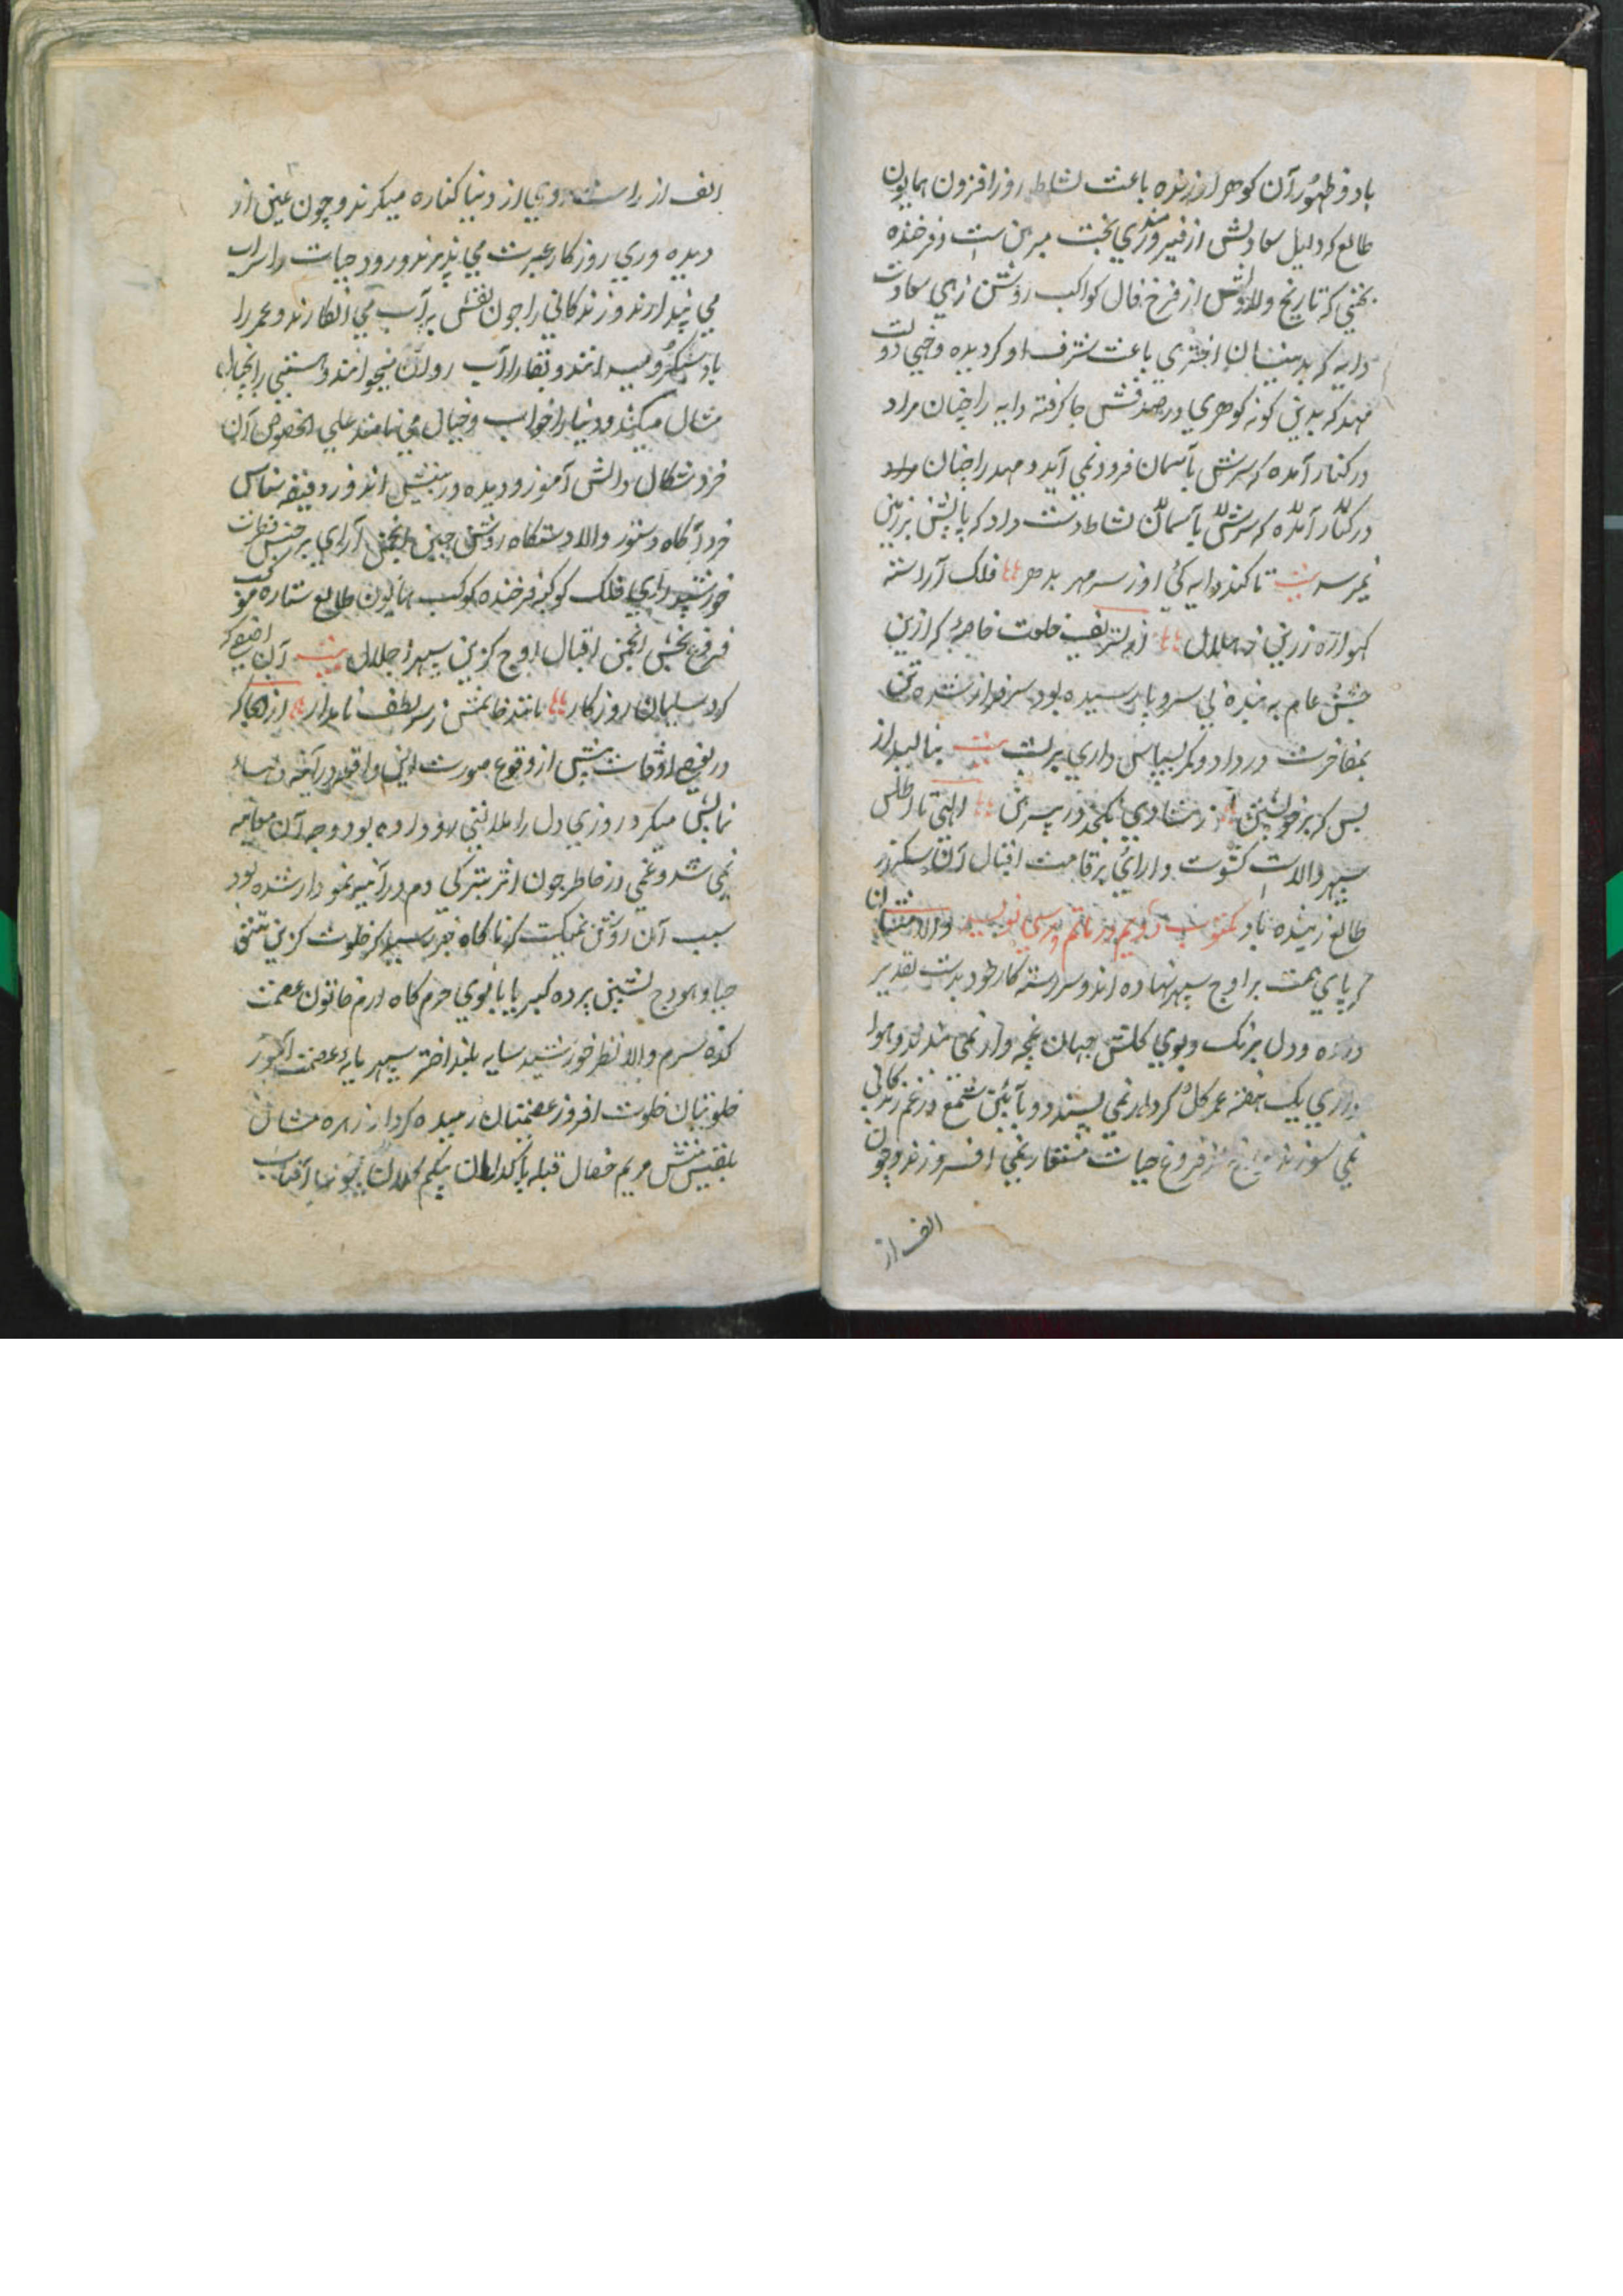 باد و ظهور آن کوهر ارزنده باعث نشاط روز افزون همایون
طالع که دلیل سعادتش از فیروزمندی بخت مبرهن است و فرخنده
بختی که تاریخ ولادتش از فرخ فال کواکب روشن زهی سعادت
دایه که بدینسان اختری باعث شرف او کردیده و خهی دولت
مهد که بدین کونه کوهری در صدفش جا کرفته دایه را چنان مراد
در کنار آمده که سرش بآسمان فرود نمی آید و مهد را چنان مراد
در کنار آمده که سرش بآسمان نشاط دست داد که پایش بر زمین
نمیرسد بیت تا کند دایه کی او ز سر مهر بدهر فلک آراسته
کهواره زرین ز هلال از تشریف خلعت خاصه که ازین
جشن عام به بنده بی سر و پا رسیده بود سرفراز شده تن
بمفاخرت در داد و کمر بسپاس داری بر بست بیت بنا لید از
بس که بر خویشتن از شادی نکنجد در پیرهن الهی تا اطلس
سپهر والاست کسوت دارائی بر قامت اقبال آن سکندر
طالع زیبنده باد مکتوب دویم در ماتم پرسی نویسد والا منشان
که پای همت بر اوج سپهر نهاده اند و سررشته کار خود بدست تقدیر
داده و دل برنک و بوی کلشن جهان غنچه وار نمی بندند و هوا
داری یک هفته عمر کل کردار نمی پسندند و بآئین شمع در غم زندکانی
نمی سوزند و چراغ فروغ حیات مستعار نمی افروزند و چون
الف از
الف از راست روی از دنیا کناره میکیرند و چون عین از
دیده وری روزکار عبرت می پذیرند و رود حیات را سراب
می پندارند و زندکانی را چون نقش بر آب می انکارند و عمر را
باد سبکرو میدانند و بقا را آب روان میخوانند و هستی را خیال
مثال میکنند و دنیا را خواب و خیال می نامند علی الخصوص آن
خرد سکال دانش آموز و دیده ور بینش اندوز دقیقه شناس
خرد آکاه دستور والا دستکاه روشن جبین انجمن آرای برجیس فطرت
خورشید رای فلک کوکبه فرخنده کوکب همایون طالع ستاره موکب
فروغ بخش انجمن اقبال اوج کزین سپهر اجلال بیت آن آصفی که
کرد سلیمان روزکار مانند خاتمش ز سر لطف نامدار از انجا که
در بعضی اوقات پیش از وقوع صورت این واقعه در آئینه
نمایش میکرد روزی دل را ملالتی رو داده بود و وجه آن معلوم
نمی شد و غمی در خاطر چون اثر تیرکی دم در آئینه نمودار شده بود
سبب آن روشن نمیکشت که ناکاه خبر رسید که خلوت کزین تتق
حیا و هودج نشین پرده کبریا بانوی حرم کاه ارم خاتون عصمت
کده شرم والا نظر خورشید سایه بلند اختر سپهر پایه عصمت
خلوتیان خلوت افروز عصمتیان زهره مثال
بلقیس منش مریم خصال قبله پاکدامنان بیکم آفتاب